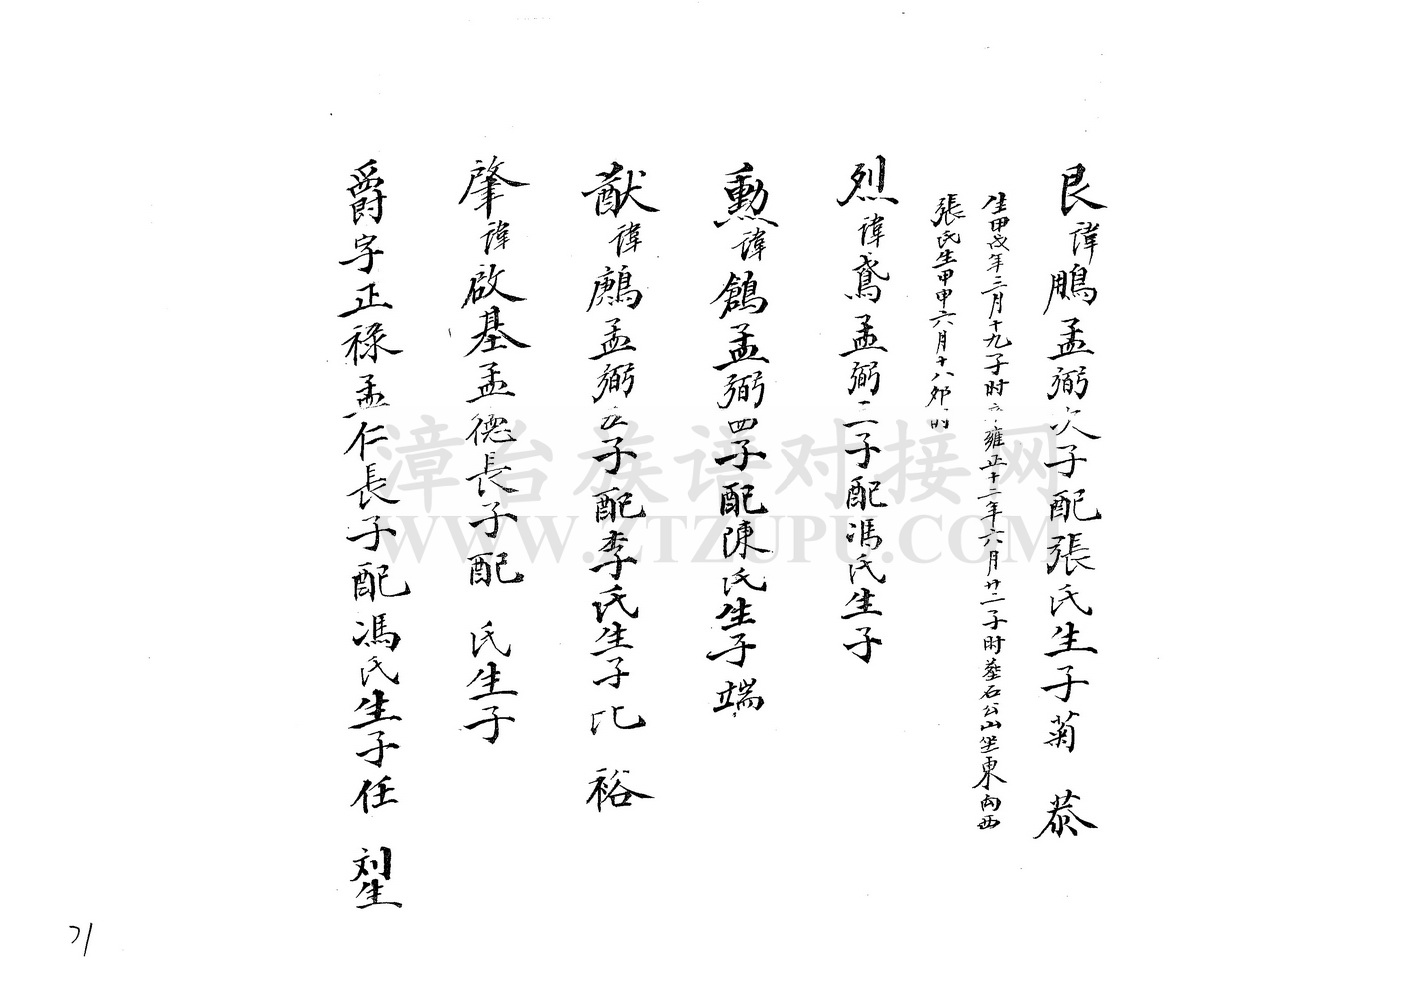 艮諱鵰孟弼次子配張氏生子菊　恭
生甲戌年三月十九子时卒雍正十二年六月廿二子时墓石公山坐東向西
張氏生甲申六月十八卯时
烈諱鳶孟弼三子配馮氏生子
勳諱鶬孟弼四子配陳氏生子端
猷諱鷓孟弼五子配李氏生子比　裕
肇諱啟基孟德長子配　氏生子
爵字正祿孟仁長子配馮氏生子任　刘生
漳台族谱对接网
WWW.ZTZUPU.COM
71